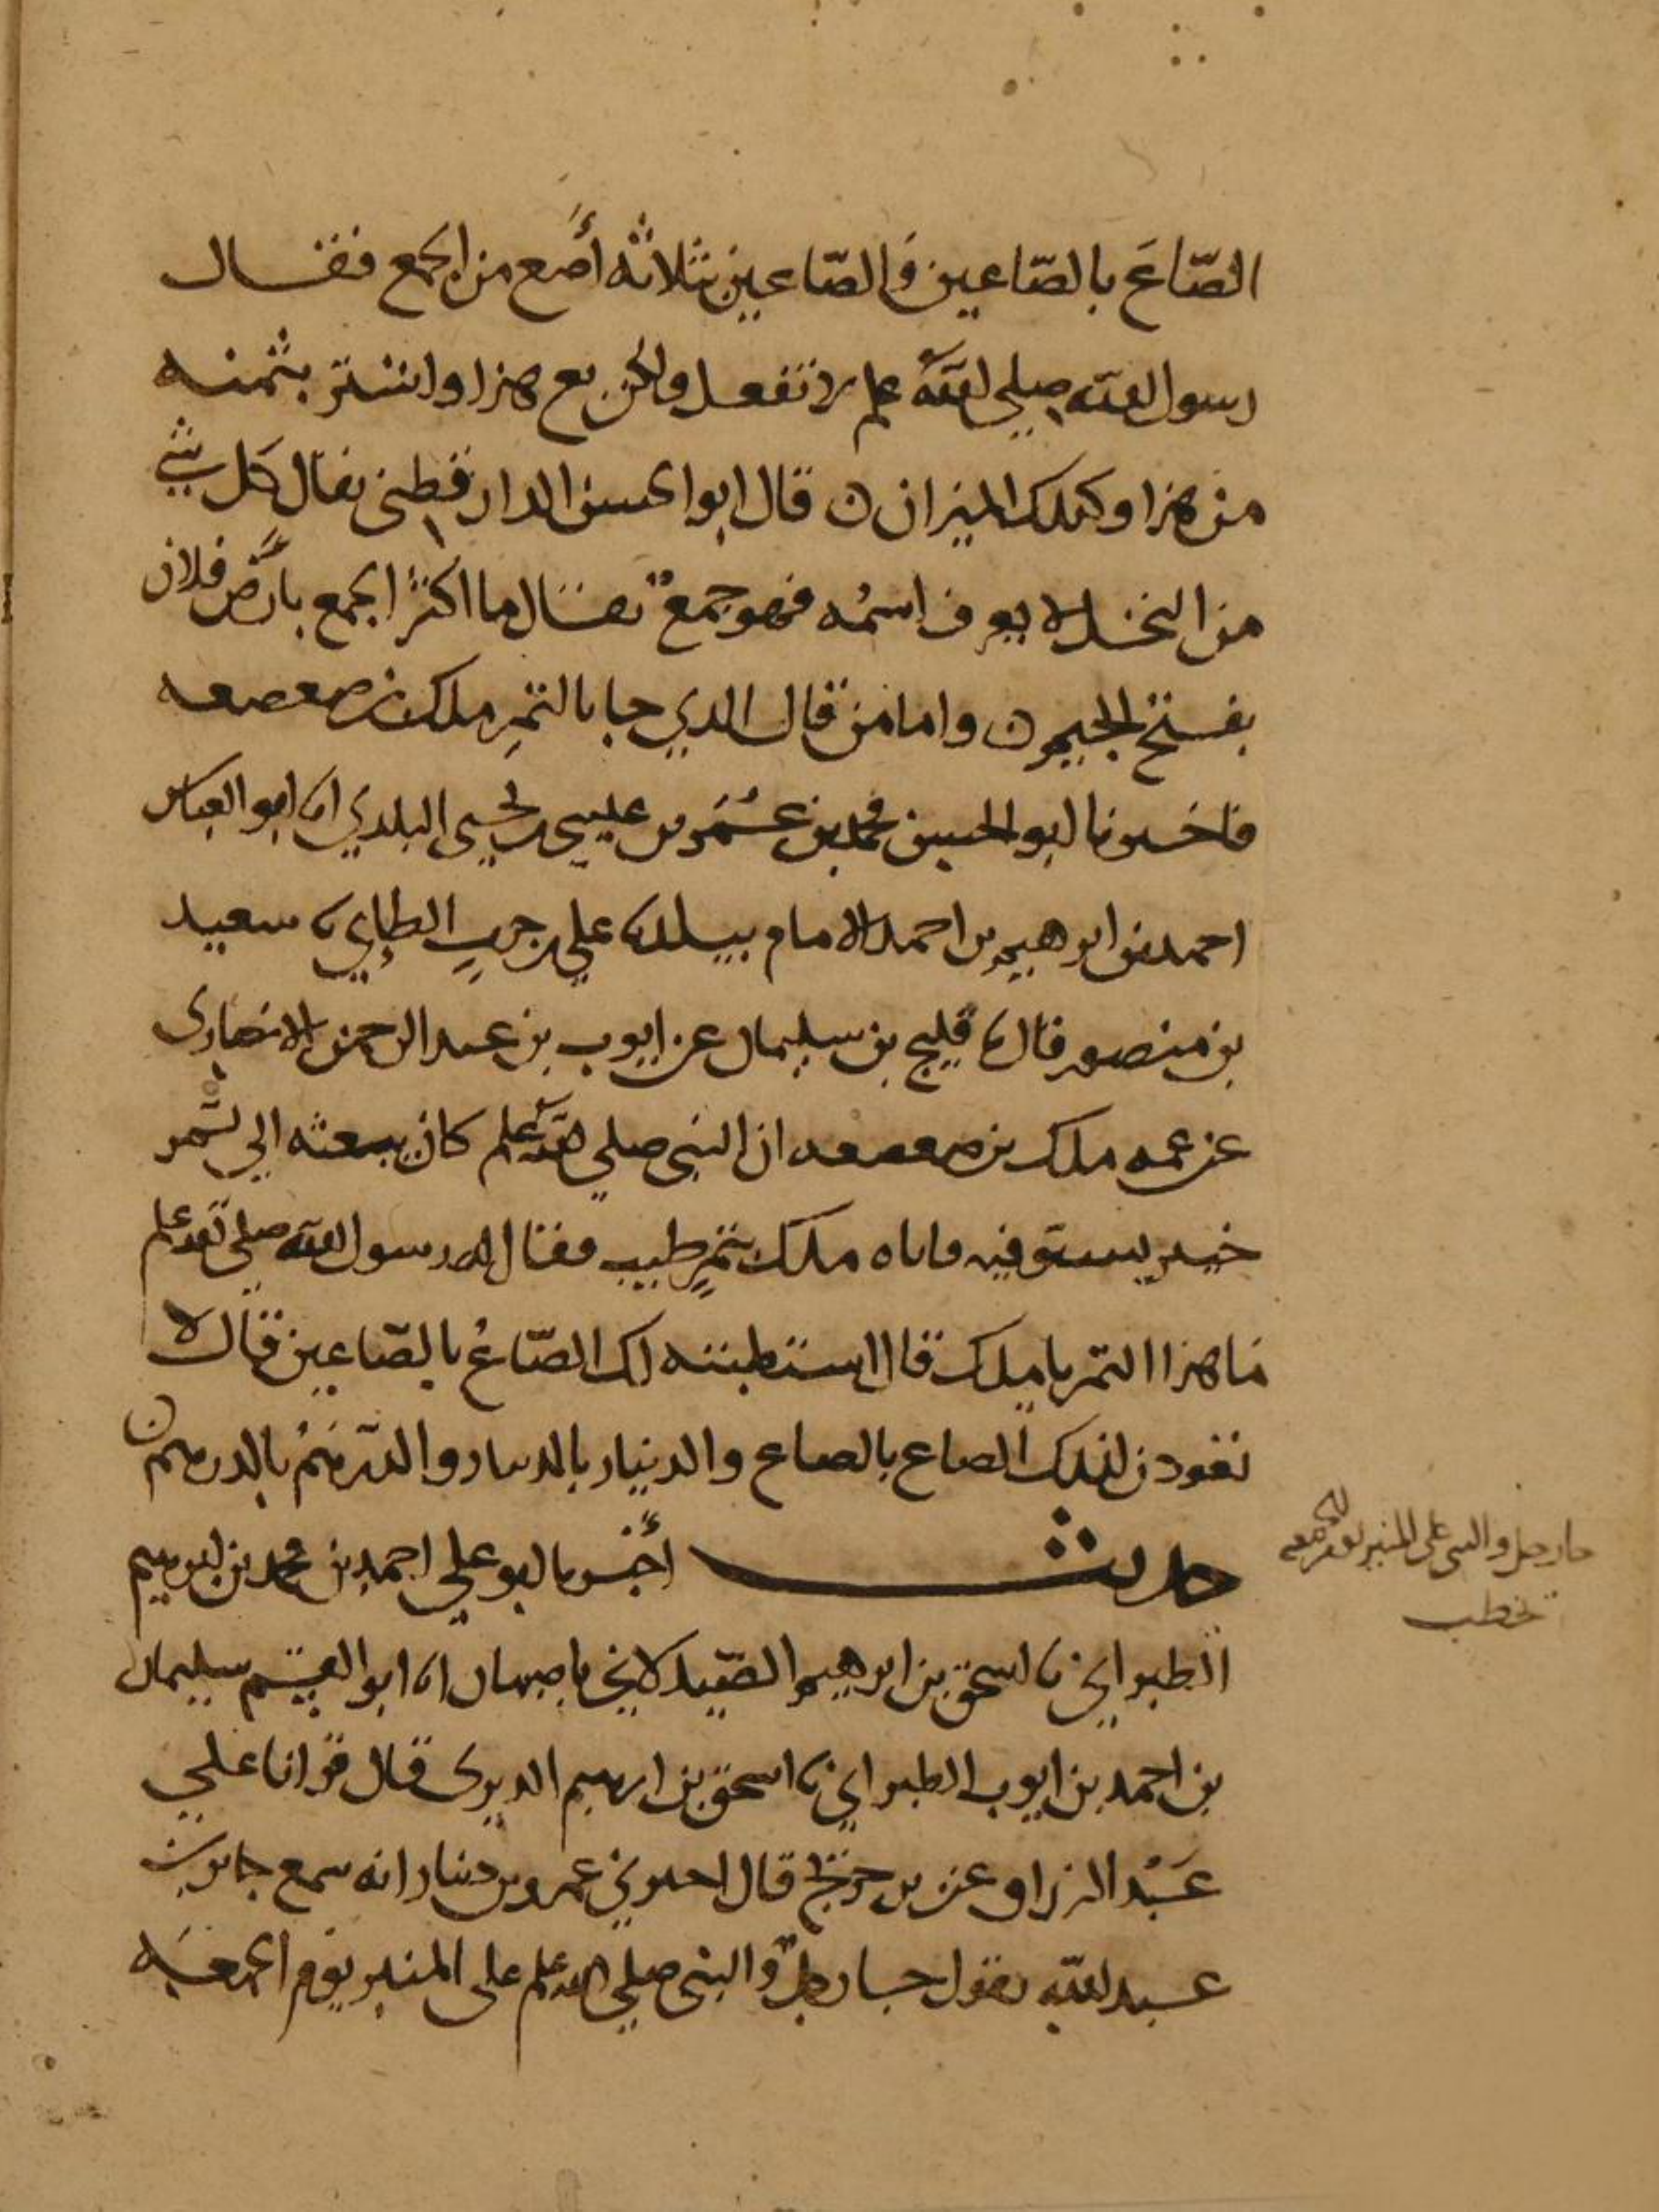 الصّاعَ بالصّاعين وَالصّاعين بثلاثة أصُع من الجمع فقال
رسول الله صلى الله علم لا تفعل ولكن بع هذا واشتر بثمنه
من هذا وكذلك الميزان ن قال ابو الحسن الدارقطني يقال كل شي
من النخل لا يعرف اسمُه فهو جمعٌ يقال ما اكثرَ الجمع بأرض فلان
بفتح الجيم ن واما من قال الذي جا بالتمرِ ملك بن صعصعه
فاخبرنا ابو الحسين محمد بن عُمَر بن عيسى بن يحيى البلدي انا ابو العباس
احمد بن ابرهيم بن احمد الامام ببلد نا علي بن حربٍ الطايي نا سعيد
بن منصور قال نا فليح بن سليمان عن ايوب بن عبد الرحمن الانصارى
عن عمه ملك بن صعصعه ان النبى صلى الله علم كان يبعثه الي تمر
خيبر يستوفيه فاتاه ملك بتمرٍ طيب فقال له رسول الله صلى الله علم
مَا هذا التمر يا ملك قال استطبته لك الصّاعُ بالصّاعين قال لا
تعودن لذلك الصاع بالصاع والدينار بالدينار والدّرهَمُ بالدرهم ن
حديث أخبرنا ابو علي احمد بن محمد بن ابرهيم
جا رجل والنبى على المنبر يوم الجمعه
يخطب
الطبراني نا اسحق بن ابرهيم الصّيدلاني باصبهان انا ابو القسم سليمان
بن احمد بن ايوب الطبراني نا اسحق بن ابرهيم الدبرى قال قرانا على
عَبْد الرزاق عن بن جريج قال اخبرني عمرو بن دينار انه سمع جابر بن
عبد الله يقول جا رجلٌ والنبى صلى الله علم على المنبر يوم الجمعَه